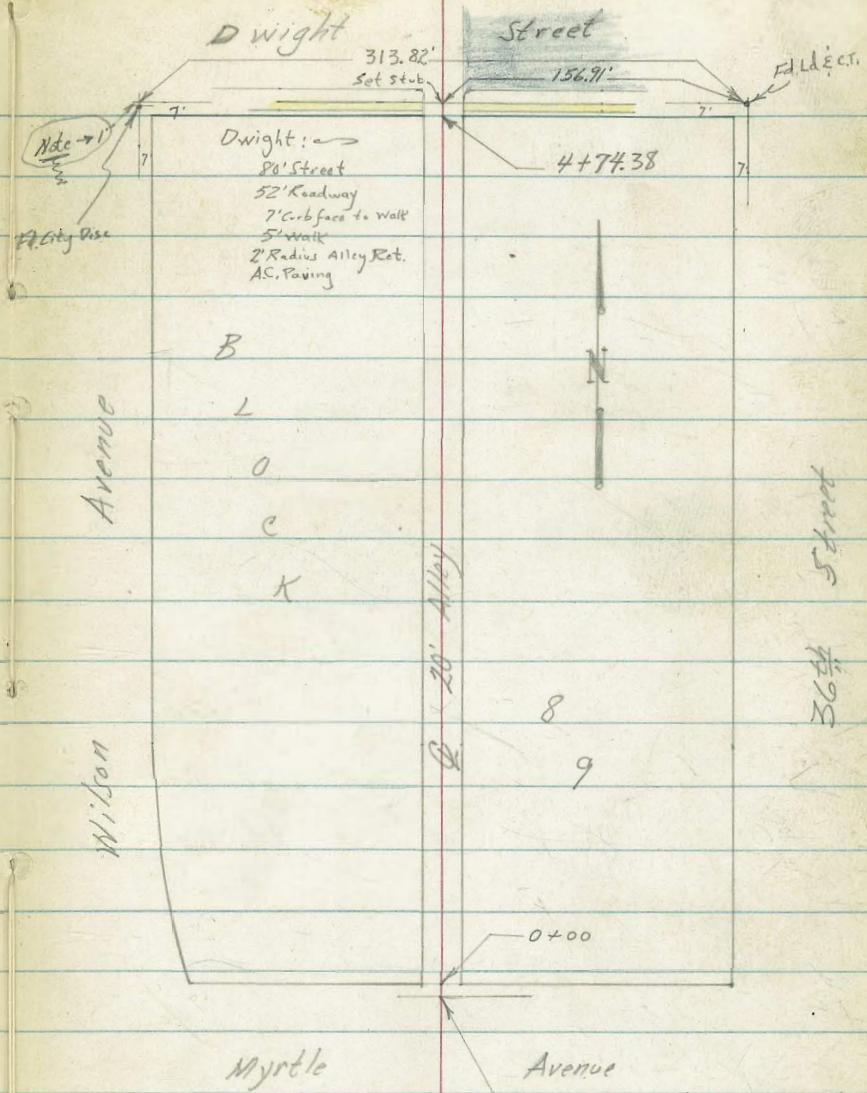 Dwight Street
313.82'
Set Stub
156.91'
Fd. Ld & C.T.
7'
7'
Note → 1'
7
7
Fd. City Disc
Dwight:
80' Street
52' Roadway
7' Curb face to Walk
5' Walk
2' Radius Alley Ret.
A.C. Paving
4+74.38
N
B
L
O
C
K
8
9
Wilson Avenue
℄ 20' Alley
36th Street
0+00
Myrtle Avenue